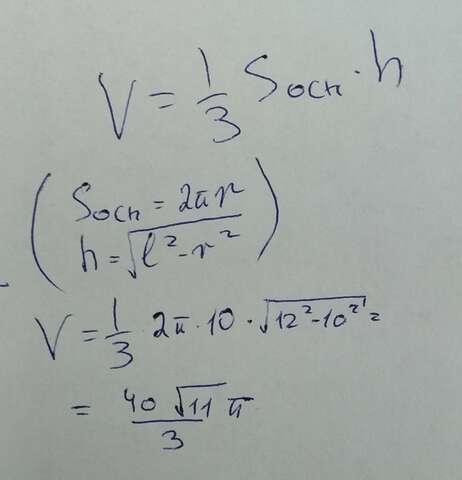 V = 1/3 Sосн · h
( Sосн = 2πr
h = √(l² - r²) )
V = 1/3 · 2π · 10 · √(12² - 10²) =
= 40√11 π / 3